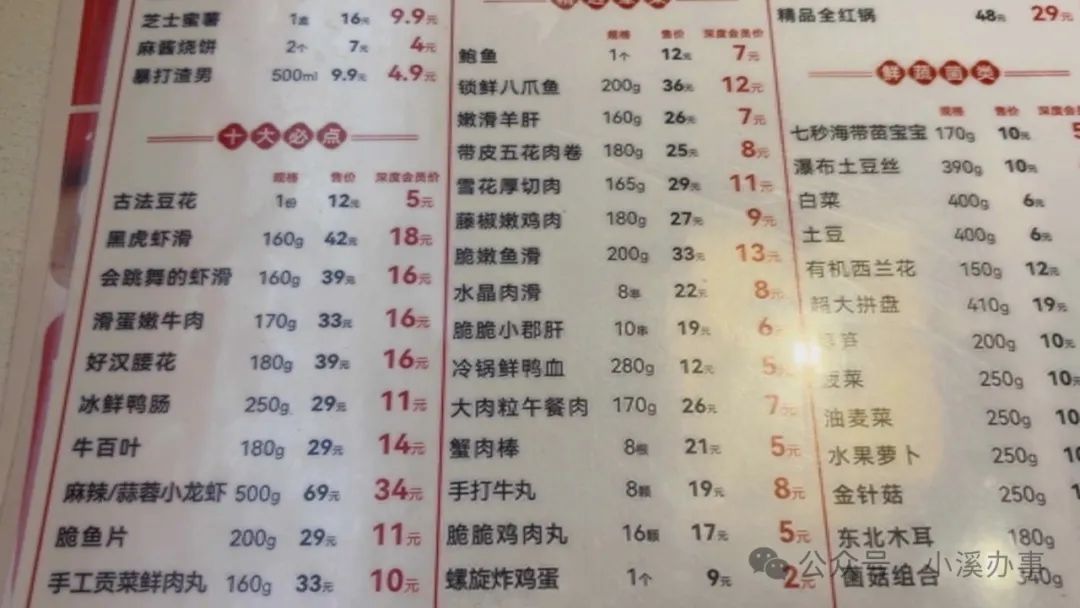 芝士蜜薯 1盒 16元 9.9元
麻酱烧饼 2个 7元 4元
暴打渣男 500ml 9.9元 4.9元
十大必点
规格 售价 深度会员价
古法豆花 1份 12元 5元
黑虎虾滑 160g 42元 18元
会跳舞的虾滑 160g 39元 16元
滑蛋嫩牛肉 170g 33元 16元
好汉腰花 180g 39元 16元
冰鲜鸭肠 250g 29元 11元
牛百叶 180g 29元 14元
麻辣/蒜蓉小龙虾 500g 69元 34元
脆鱼片 200g 29元 11元
手工贡菜鲜肉丸 160g 33元 10元
规格 售价 深度会员价
鲍鱼 1个 12元 7元
锁鲜八爪鱼 200g 36元 12元
嫩滑羊肝 160g 26元 7元
带皮五花肉卷 180g 25元 8元
雪花厚切肉 165g 29元 11元
藤椒嫩鸡肉 180g 27元 9元
脆嫩鱼滑 200g 33元 13元
水晶肉滑 8串 22元 8元
脆脆小郡肝 10串 19元 6元
冷锅鲜鸭血 280g 12元 5元
大肉粒午餐肉 170g 26元 7元
蟹肉棒 8根 21元 5元
手打牛丸 8颗 19元 8元
脆脆鸡肉丸 16颗 17元 5元
螺旋炸鸡蛋 1个 9元 2元
精品全红锅 48元 29元
鲜蔬菌类
规格 售价 深度
七秒海带苗宝宝 170g 10元
瀑布土豆丝 390g 10元
白菜 400g 6元
土豆 400g 6元
有机西兰花 150g 12元
超大拼盘 410g 19元
笋 200g 10元
菠菜 250g 10元
油麦菜 250g 10
水果萝卜 250g
金针菇 250g
东北木耳 180g
菌菇组合
公众号 小溪办事